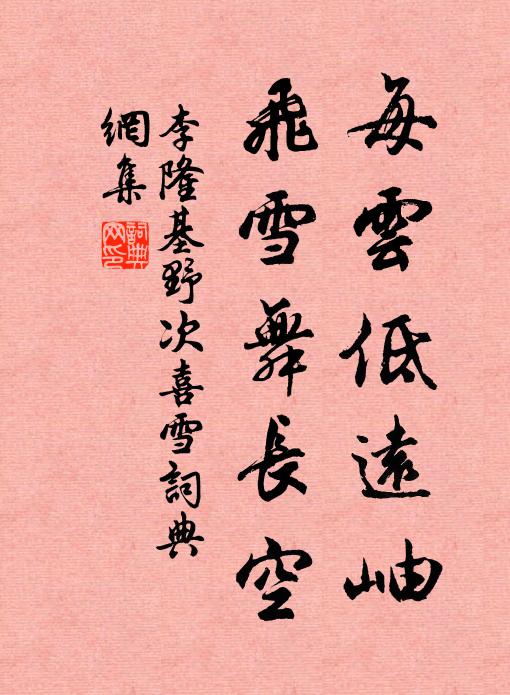 每雲低遠岫
飛雪舞長空
李隆基野次喜雪詞典
網集
詞典網印